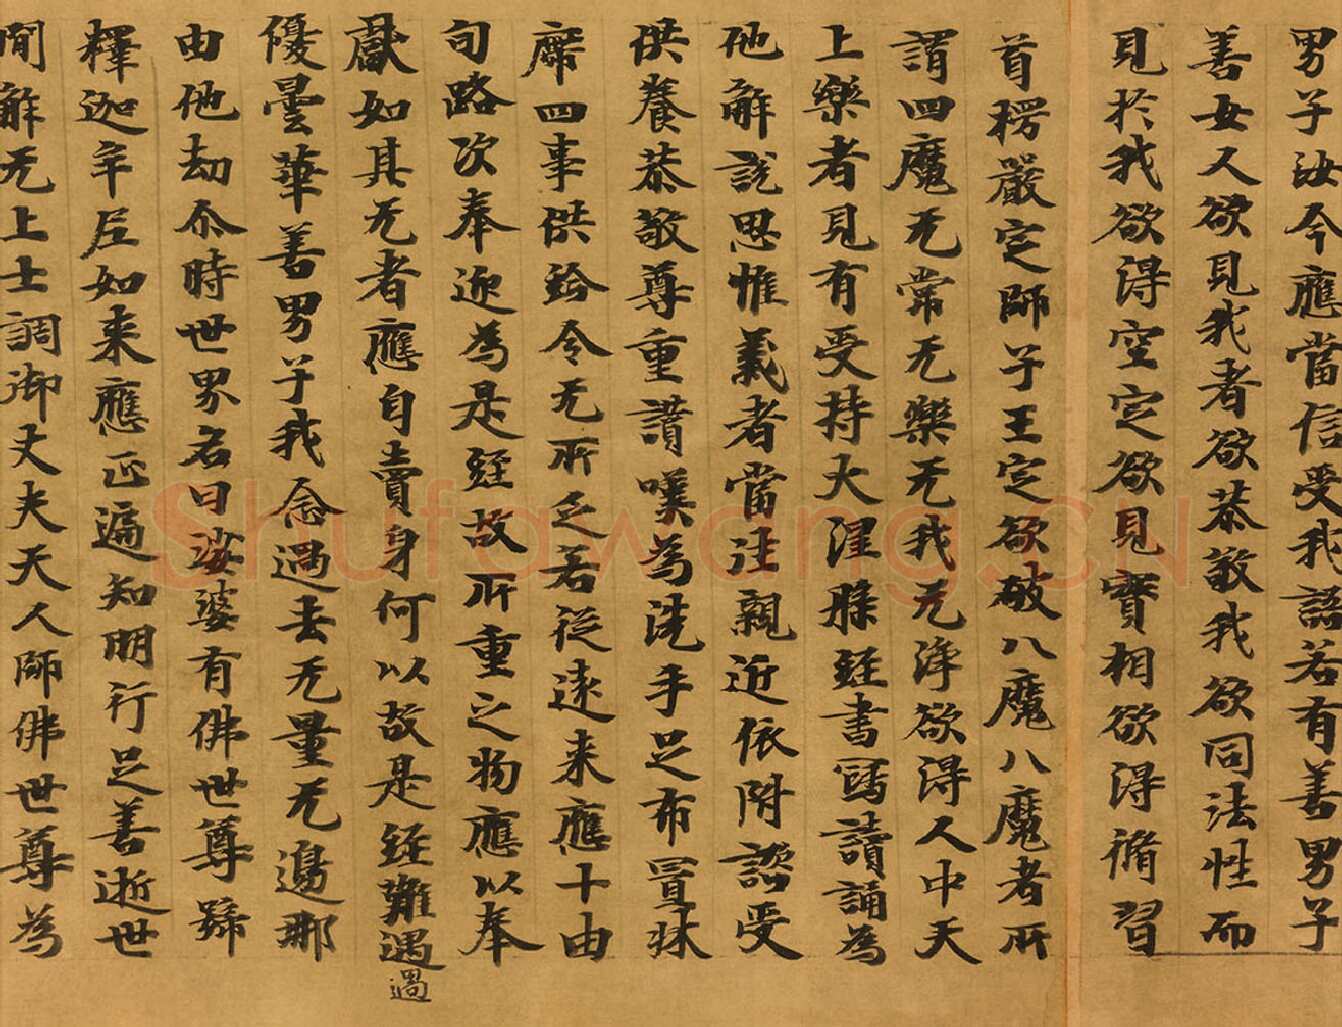 男子汝今應當信受我語若有善男子
善女人欲見我者欲恭敬我欲同法性而
見於我欲得空定欲見實相欲得脩習
首楞嚴定師子王定欲破八魔八魔者所
謂四魔无常无樂无我无淨欲得人中天
上樂者見有受持大涅槃經書寫讀誦為
他解說思惟義者當往親近依附諮受
供養恭敬尊重讚嘆為洗手足布置牀
席四事供給令无所乏若從遠来應十由
旬路次奉迎為是經故所重之物應以奉
獻如其无者應自賣身何以故是經難遇過
優曇華善男子我念過去无量无邊那
由他劫尒時世界名曰娑婆有佛世尊號
釋迦牟尼如来應正遍知明行足善逝世
間解无上士調御丈夫天人師佛世尊為
Shufawang.CN